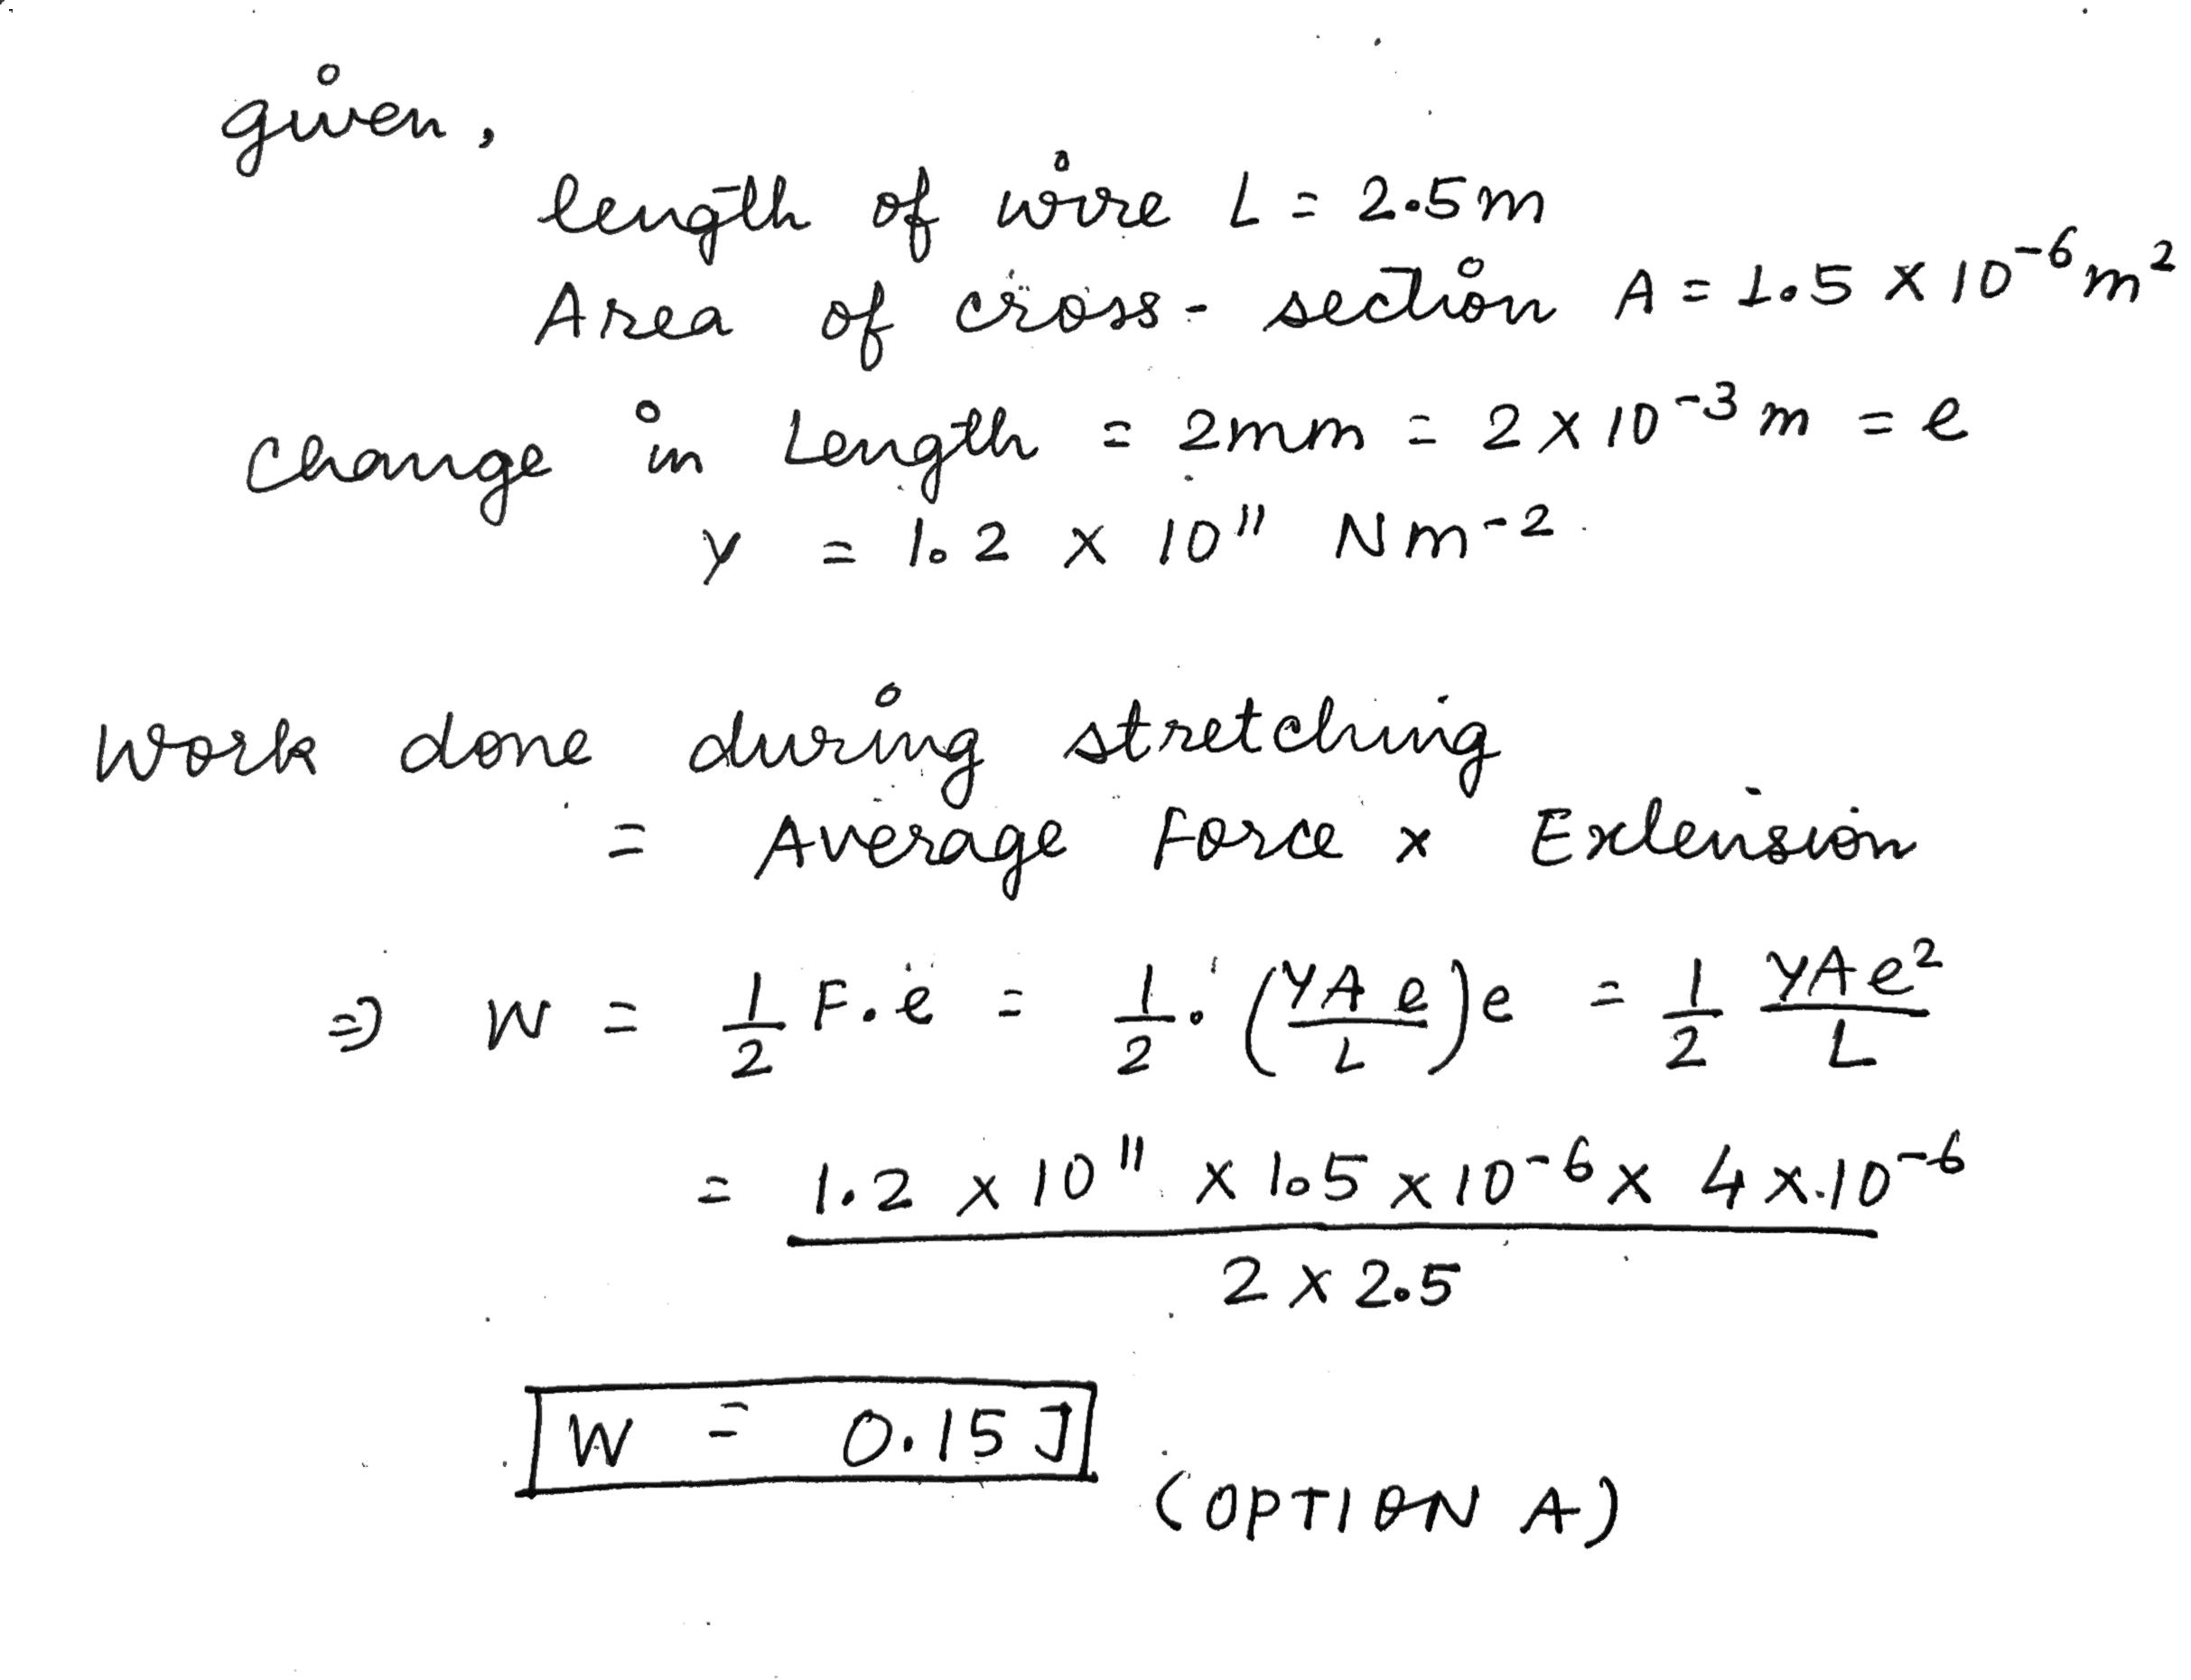 given,
length of wire L = 2.5m
Area of cross-section A = 1.5 x 10⁻⁶ m²
Change in Length = 2mm = 2 x 10⁻³ m = e
Y = 1.2 x 10¹¹ Nm⁻²
Work done during stretching
= Average Force x Extension
⇒ W = 1/2 F.e = 1/2 . (YAe/L)e = 1/2 YAe²/L
= 1.2 x 10¹¹ x 1.5 x 10⁻⁶ x 4 x 10⁻⁶
2 x 2.5
W = 0.15 J
(OPTION A)